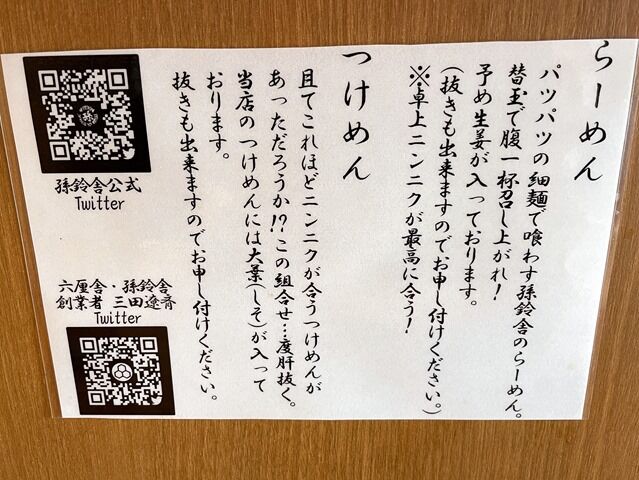 らーめん
パツパツの細麺で喰わす孫鈴舎のらーめん。
替玉で腹一杯召し上がれ！
予め生姜が入っております。
（抜きも出来ますのでお申し付けください。）
※卓上ニンニクが最高に合う！
つけめん
且てこれほどニンニクが合うつけめんが
あっただろうか!?この組合せ…度肝抜く。
当店のつけめんには大葉(しそ)が入って
おります。
抜きも出来ますのでお申し付けください。
孫鈴舎公式
Twitter
六厘舎・孫鈴舎
創業者 三田遼斉
Twitter